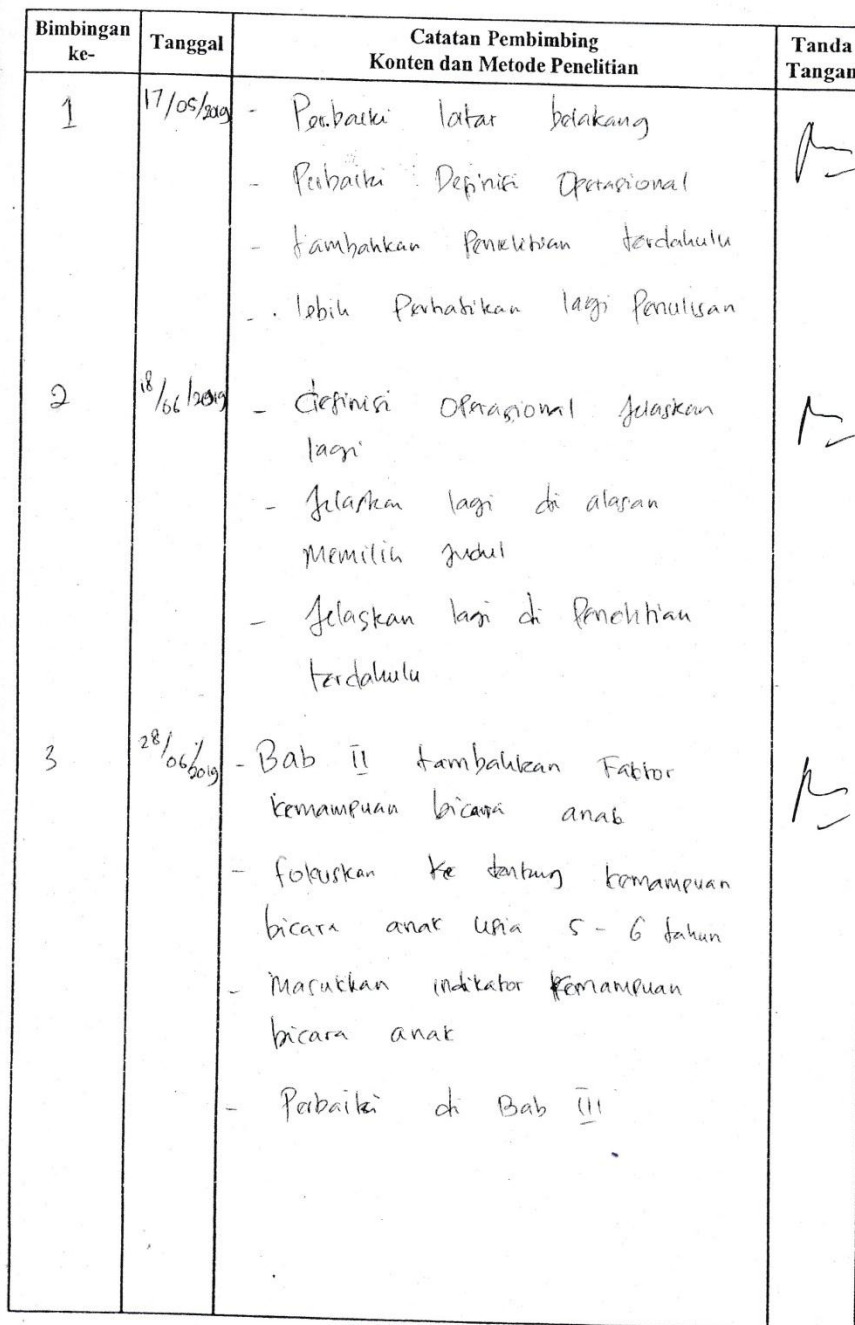 Bimbingan ke-
Tanggal
Catatan Pembimbing
Konten dan Metode Penelitian
Tanda Tangan
1
17/05/2019
- Perbaiki latar belakang
- Perbaiki Definisi Operasional
- tambahkan Penelitian terdahulu
- lebih Perhatikan lagi Penulisan
2
18/06/2019
- definisi Operasional Jelaskan
lagi
- Jelaskan lagi di alasan
Memilih Judul
- Jelaskan lagi di Penelitian
terdahulu
3
28/06/2019
- Bab II tambahkan Faktor
kemampuan bicara anak
- fokuskan ke tentang kemampuan
bicara anak usia 5 - 6 tahun
- Masukkan indikator kemampuan
bicara anak
- Perbaiki di Bab III